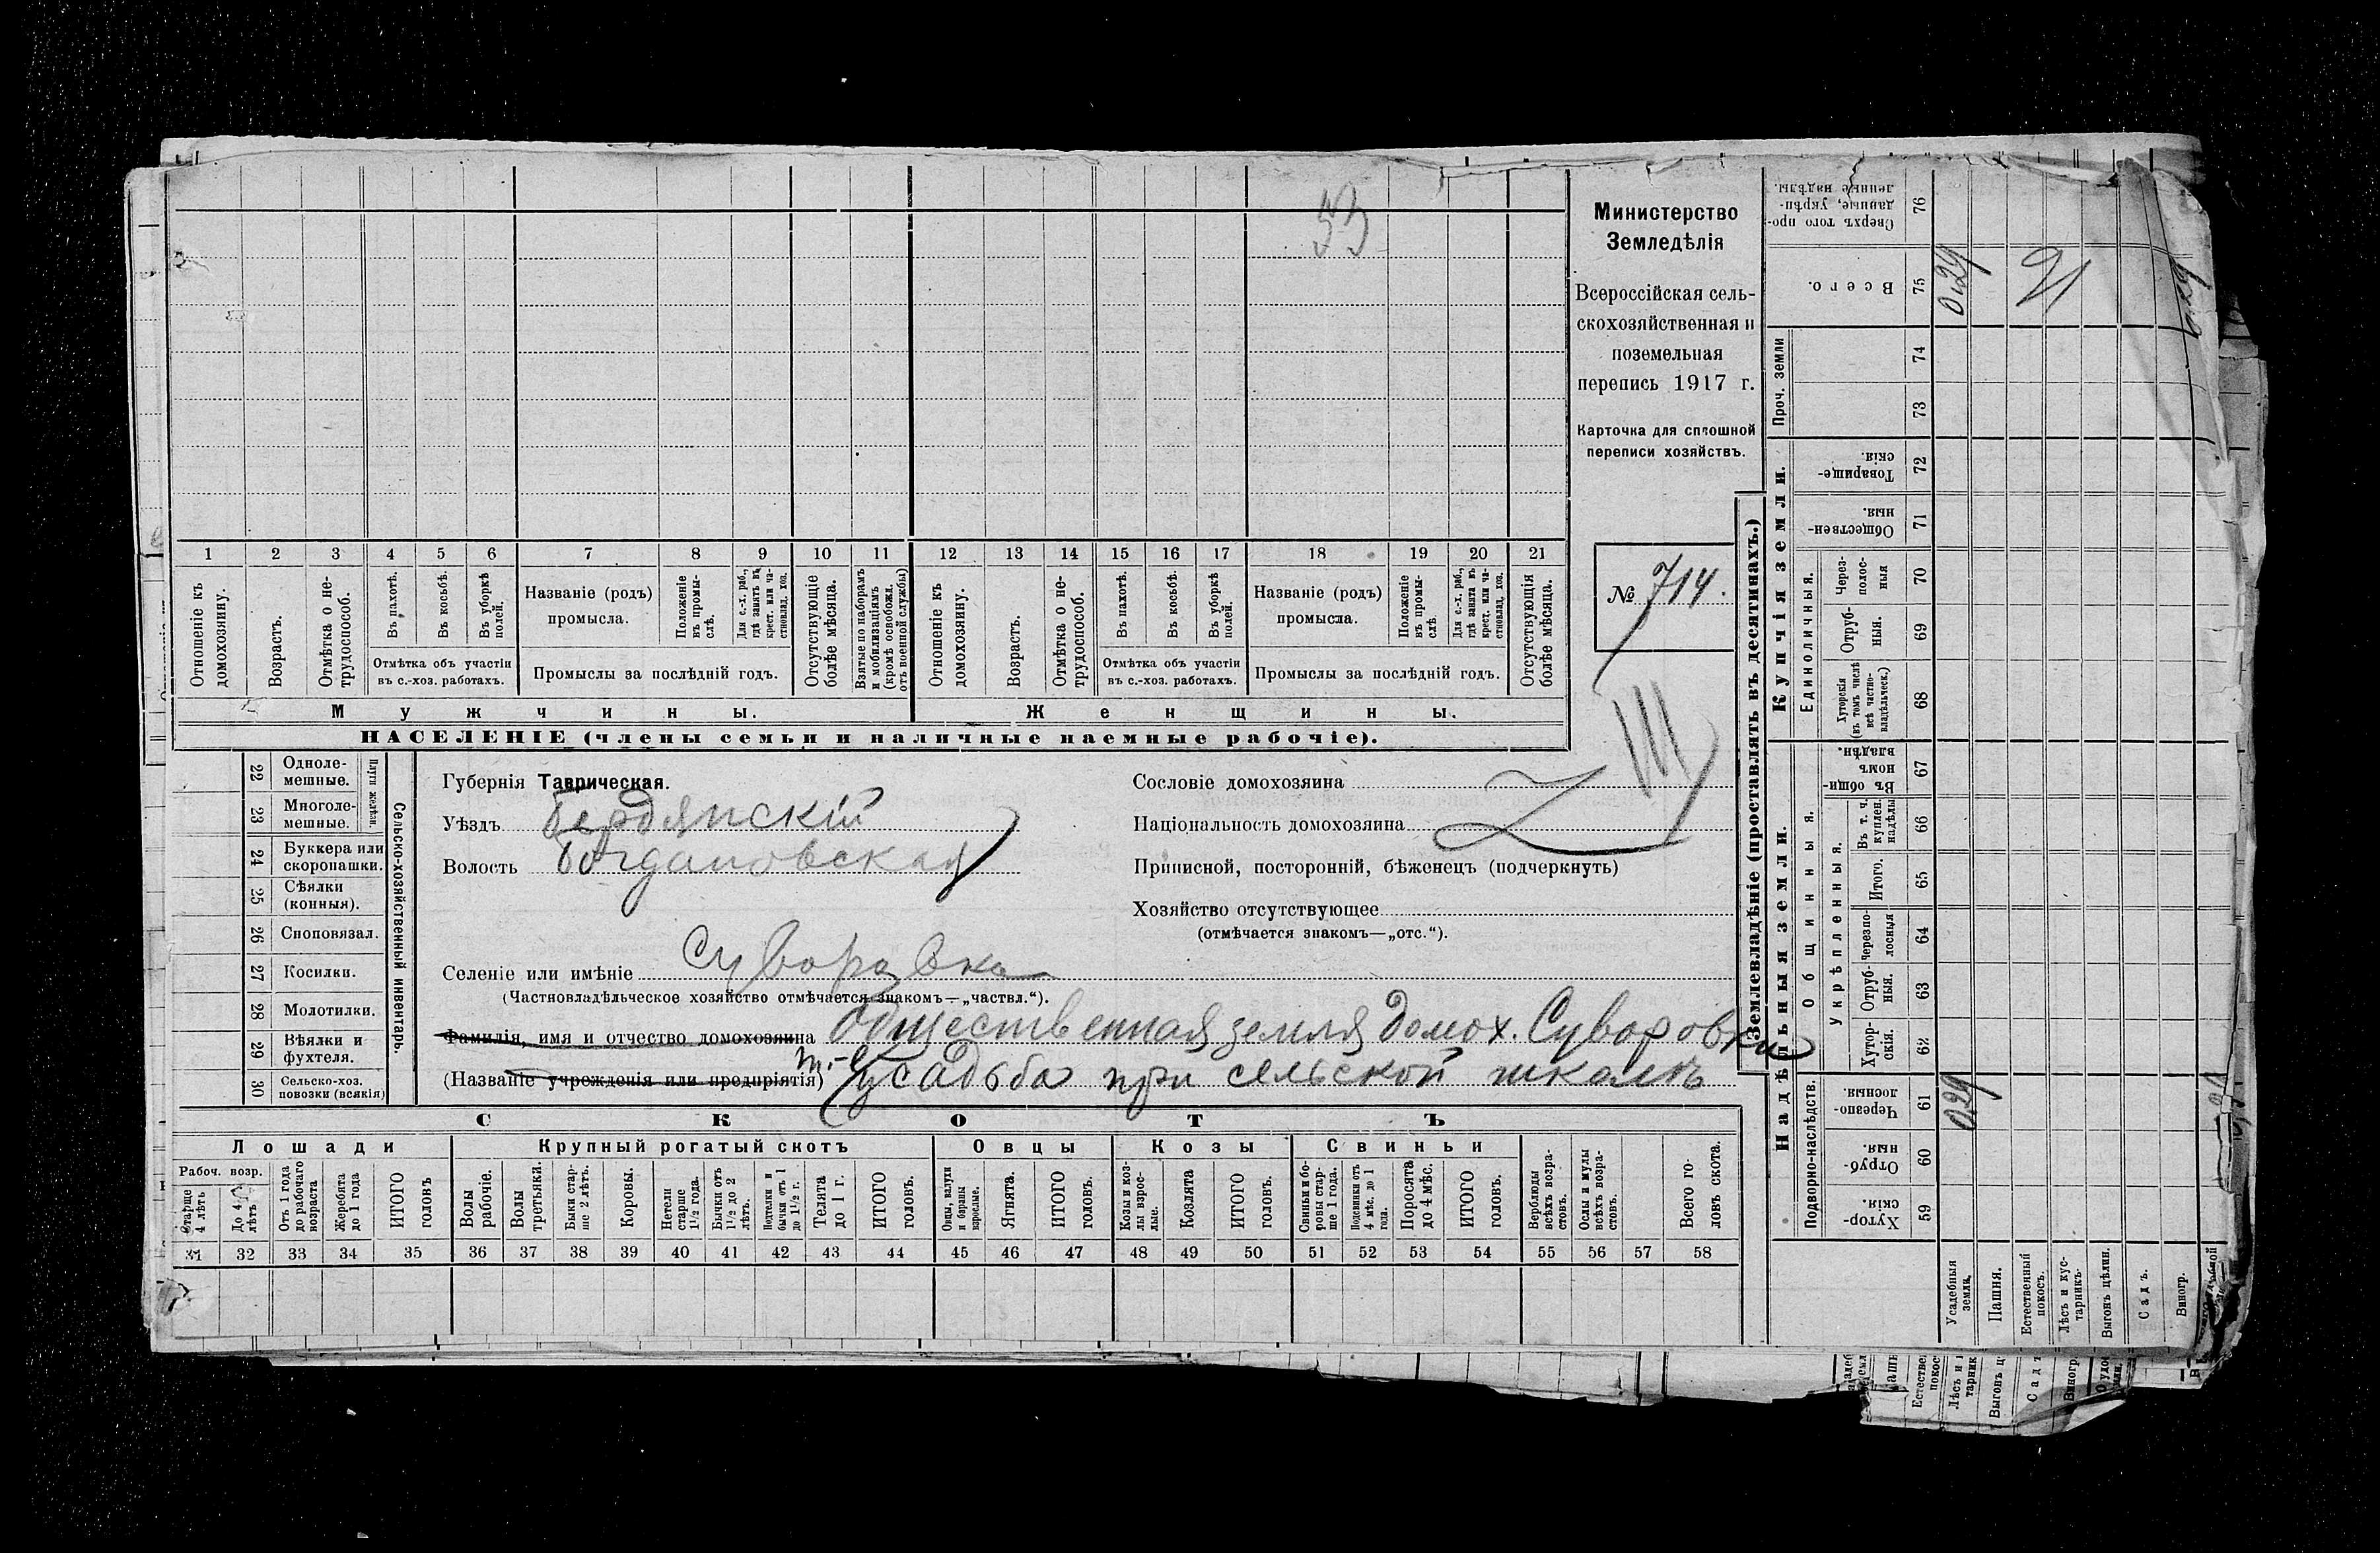 53
Министерство
Земледѣлія
Всероссійская сель-
скохозяйственная и
поземельная
перепись 1917 г.
Карточка для сплошной
переписи хозяйствъ.
№ 714.
1 2 3 4 5 6 7 8 9 10 11 12 13 14 15 16 17 18 19 20 21
Отношеніе къ домохозяину.
Возрастъ.
Отмѣтка о не-трудоспособ.
Въ пахотѣ.
Въ косьбѣ.
Въ уборкѣ полей.
Отмѣтка объ участіи
въ с.-хоз. работахъ.
Названіе (родъ)
промысла.
Положеніе въ промы-слѣ.
Для с.-х. раб., гдѣ занятъ въ крест. или ча-стновлад. хоз.
Промыслы за послѣдній годъ.
Отсутствующіе болѣе мѣсяца.
Взятые по наборамъ и мобилизаціямъ (кромѣ освобожд. отъ военной службы)
Отношеніе къ домохозяину.
Возрастъ.
Отмѣтка о не-трудоспособ.
Въ пахотѣ.
Въ косьбѣ.
Въ уборкѣ полей.
Отмѣтка объ участіи
въ с.-хоз. работахъ.
Названіе (родъ)
промысла.
Положеніе въ промы-слѣ
Для с.-х. раб., гдѣ занята въ крест. или ча-стновлад. хоз.
Промыслы за послѣдній годъ.
Отсутствующія болѣе мѣсяца.
Мужчины.
Женщины.
НАСЕЛЕНІЕ (члены семьи и наличные наемные рабочіе).
22 Одноле-мешные.
23 Многоле-мешные.
Плуги желѣзн.
24 Буккера или скоропашки.
25 Сѣялки (конныя).
26 Сноповязал.
27 Косилки.
28 Молотилки.
29 Вѣялки и фухтеля.
30 Сельско-хоз. повозки (всякія)
Сельско-хозяйственный инвентарь.
Губернія Таврическая.
Уѣздъ Бердянскій
Волость Богдановская
Селеніе или имѣніе Суворовка
(Частновладѣльческое хозяйство отмѣчается знакомъ—„частвл.“).
Фамилія, имя и отчество домохозяина Общественная земля домох. Суворовки
(Названіе учрежденія или предпріятія) т.-е. усадьба при сельской школѣ
Сословіе домохозяина
Національность домохозяина
Приписной, посторонній, бѣженецъ (подчеркнуть)
Хозяйство отсутствующее
(отмѣчается знакомъ—„отс.“).
СКОТЪ
Лошади
Крупный рогатый скотъ
Овцы
Козы
Свиньи
Рабоч. возр.
Старше 4 лѣтъ
До 4 лѣтъ
Отъ 1 года до рабочаго возраста
Жеребята до 1 года
ИТОГО головъ
Волы рабочіе.
Волы третьяки.
Быки стар-ше 2 лѣтъ.
Коровы.
Нетели старше 1½ года.
Бычки отъ 1½ до 2 лѣтъ.
Подтелки и бычки отъ 1 до 1½ г.
Телята до 1 г.
ИТОГО головъ.
Овцы, валухи и бараны взрослые.
Ягнята.
ИТОГО головъ.
Козы и коз-лы взрос-лые.
Козлята
ИТОГО головъ.
Свиньи и бо-ровы стар-ше 1 года.
Подсвинки отъ 4 мѣс. до 1 года.
Поросята до 4 мѣс.
ИТОГО головъ.
Верблюды всѣхъ возра-стовъ.
Ослы и мулы всѣхъ возра-стовъ.
Всего го-ловъ скота.
31 32 33 34 35 36 37 38 39 40 41 42 43 44 45 46 47 48 49 50 51 52 53 54 55 56 57 58
Землевладѣніе (проставлять въ десятинахъ.)
Надѣльныя земли.
Купчія земли.
Проч. земли
Подворно-наслѣдств.
Общинныя.
Укрѣпленныя.
Единоличныя.
Хутор-скія. 59
Отруб-ныя. 60
Черезпо-лосныя. 61
Хутор-скія. 62
Отруб-ныя. 63
Черезпо-лосныя 64
Итого. 65
Въ т. ч. куплен. надѣлы 66
Въ общин-номъ владѣн. 67
Хуторскія (въ томъ числѣ всѣ частно-владѣльческ.) 68
Отруб-ныя. 69
Через-полос-ныя 70
Обществен-ныя. 71
Товарище-скія. 72
73
74
Всего. 75
Сверхъ того про-данные, укрѣп-ленные надѣлы. 76
Усадебныя земли. 0,29 0,29
Пашня.
Естественный покосъ.
Лѣсъ и кус-тарникъ.
Выгонъ цѣлин.
Садъ.
Виногр.